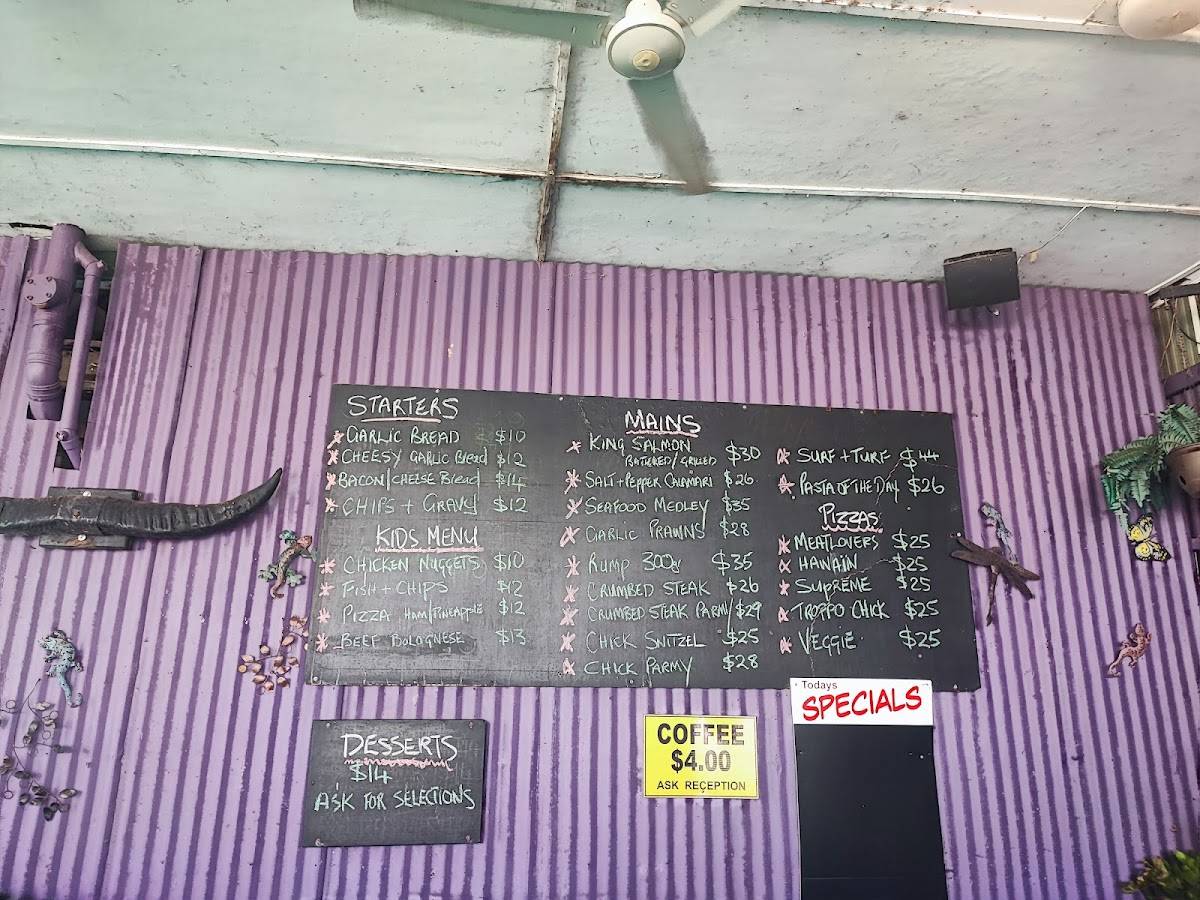 STARTERS
GARLIC BREAD $10
CHEESY GARLIC Bread $12
BACON/CHEESE Bread $14
CHIPS + GRAVY $12
KIDS MENU
CHICKEN NUGGETS $10
FISH + CHIPS $12
PIZZA HAM/PINEAPPLE $12
BEEF BOLOGNESE $13
MAINS
KING SALMON $30
BATTERED/GRILLED
SALT + PEPPER CALAMARI $26
SEAFOOD MEDLEY $35
GARLIC PRAWNS $28
RUMP 300g $35
CRUMBED STEAK $26
CRUMBED STEAK PARMY $29
CHICK SNITZEL $25
CHICK PARMY $28
SURF + TURF $44
PASTA OF THE DAY $26
PIZZAS
MEATLOVERS $25
HAWAIN $25
SUPREME $25
TROPPO CHICK $25
VEGGIE $25
DESSERTS
$14
ASK FOR SELECTIONS
COFFEE
$4.00
ASK RECEPTION
Todays
SPECIALS